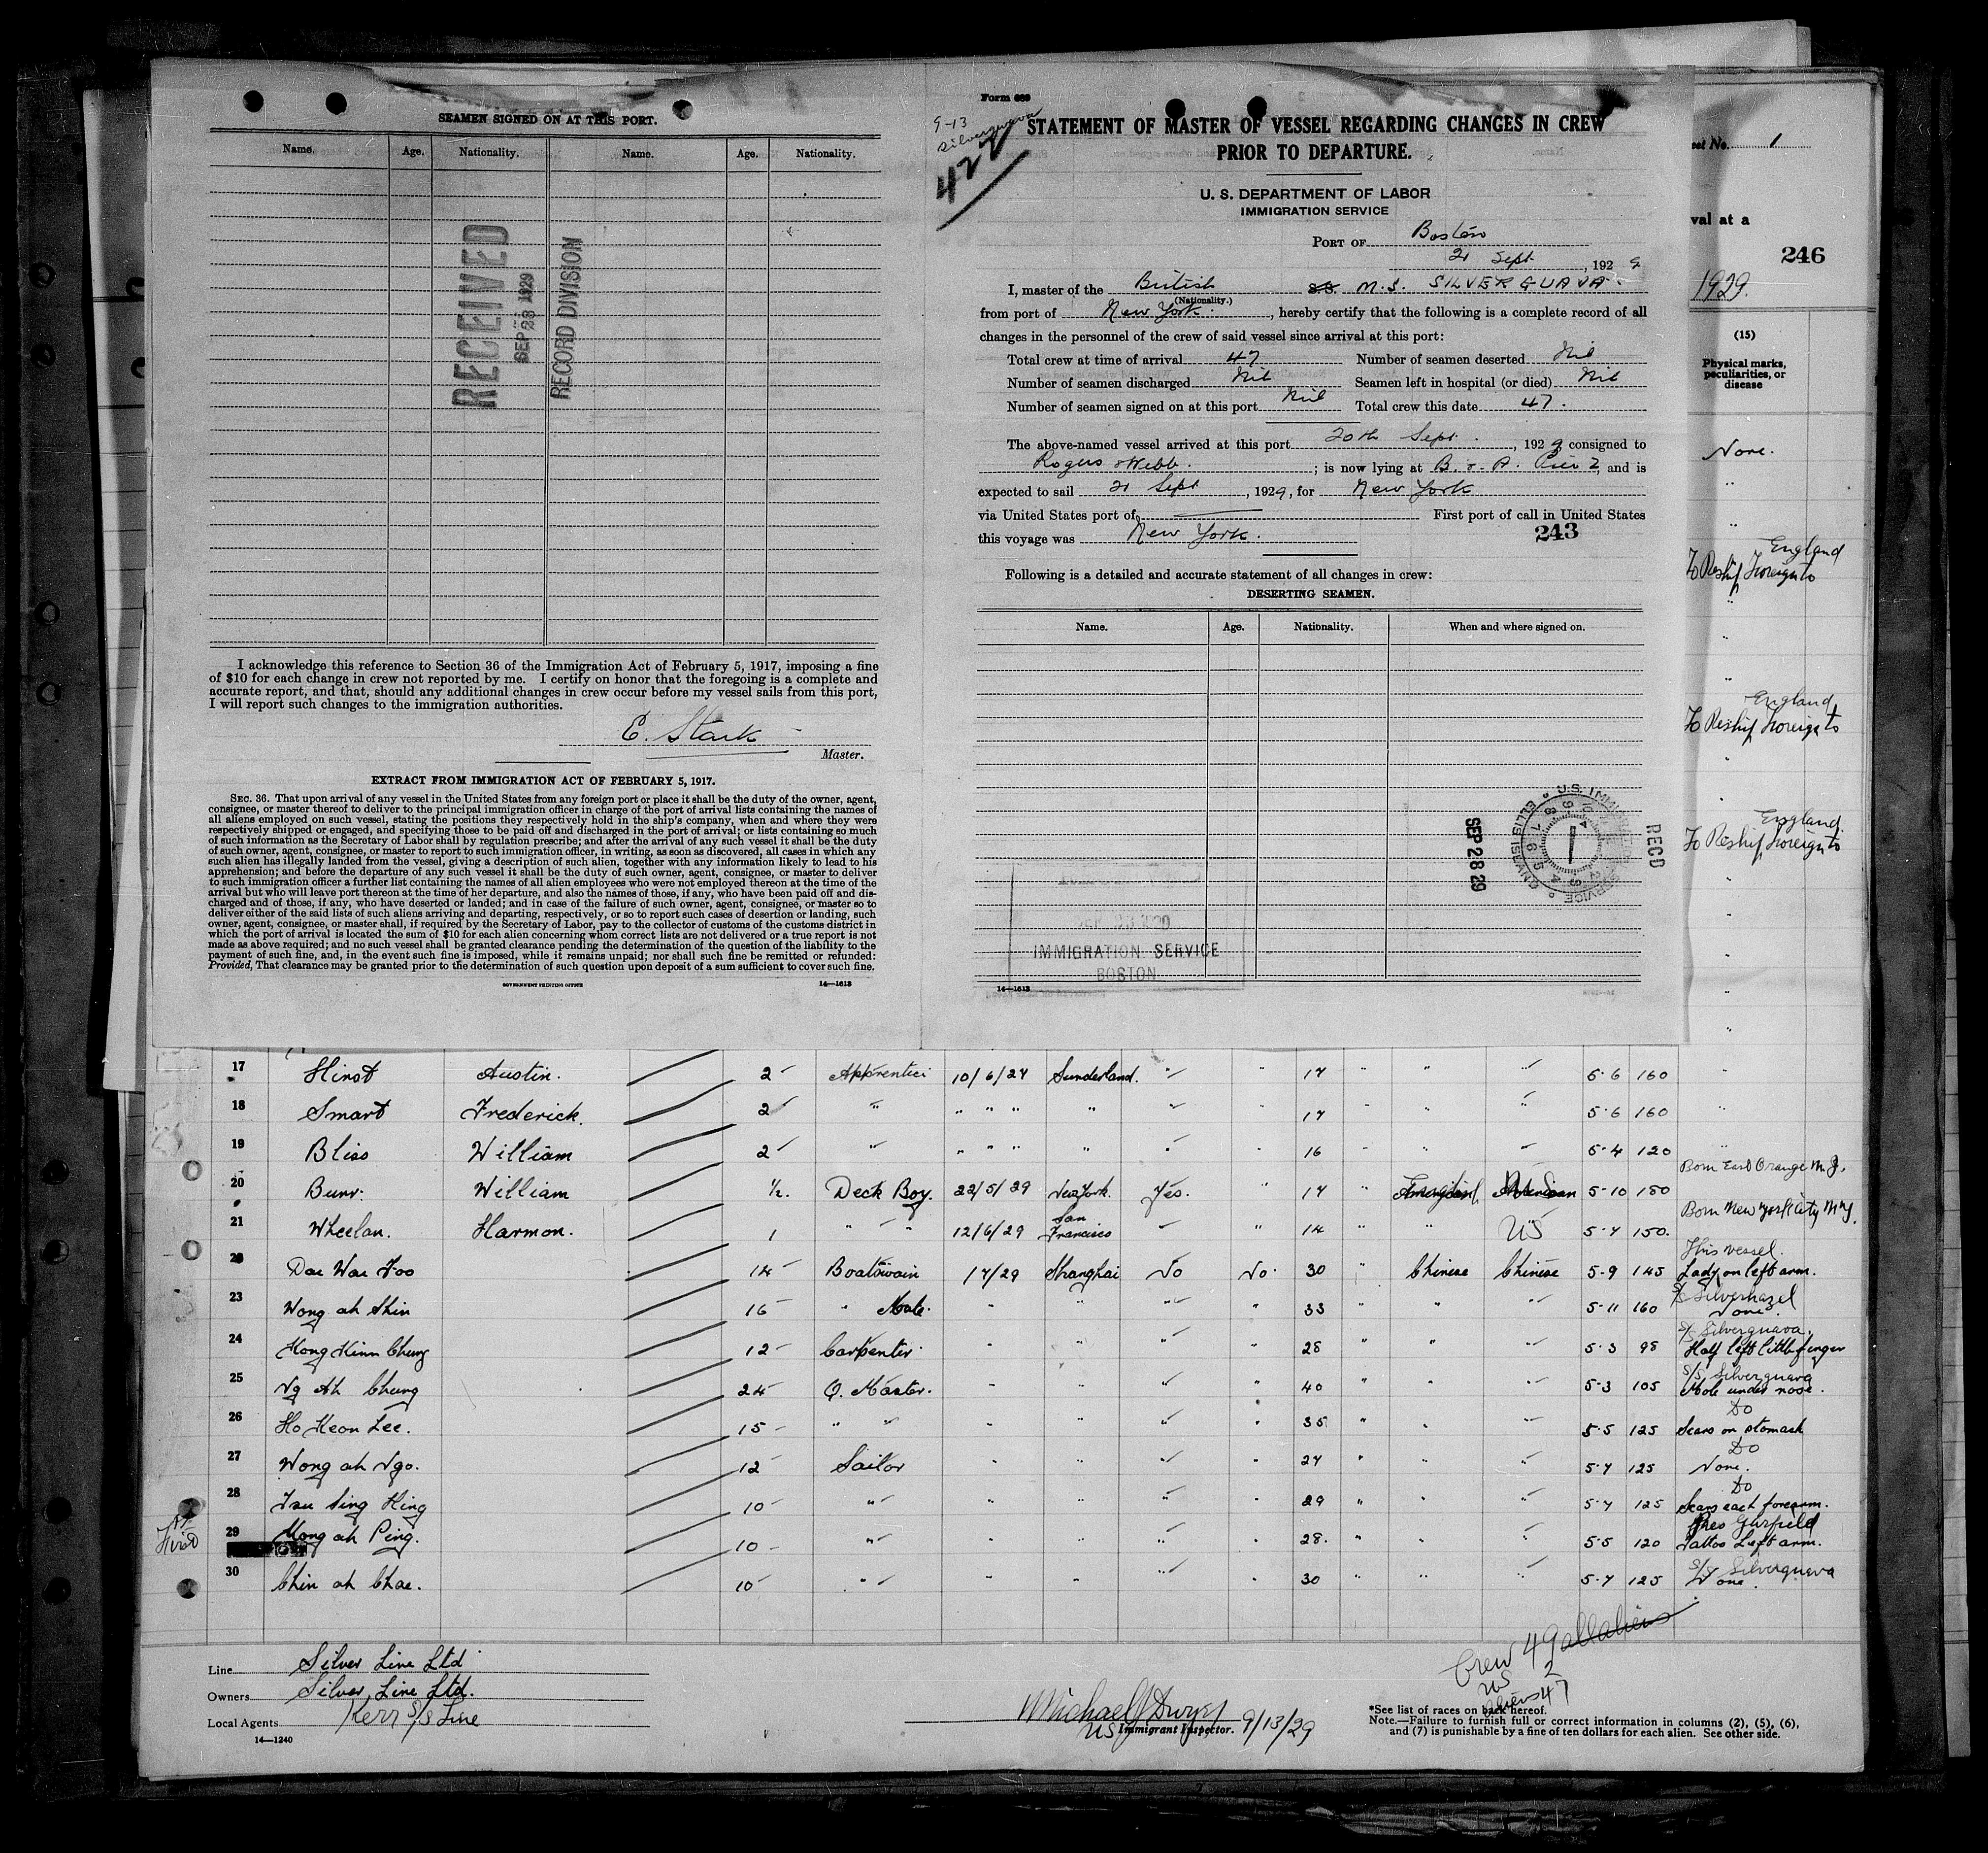 SEAMEN SIGNED ON AT THIS PORT.
Name. Age. Nationality. Name. Age. Nationality.
RECEIVED
SEP 28 1929
RECORD DIVISION
I acknowledge this reference to Section 36 of the Immigration Act of February 5, 1917, imposing a fine
of $10 for each change in crew not reported by me. I certify on honor that the foregoing is a complete and
accurate report, and that, should any additional changes in crew occur before my vessel sails from this port,
I will report such changes to the immigration authorities.
E. Stark
Master.
EXTRACT FROM IMMIGRATION ACT OF FEBRUARY 5, 1917.
SEC. 36. That upon arrival of any vessel in the United States from any foreign port or place it shall be the duty of the owner, agent,
consignee, or master thereof to deliver to the principal immigration officer in charge of the port of arrival lists containing the names of
all aliens employed on such vessel, stating the positions they respectively hold in the ship's company, when and where they were
respectively shipped or engaged, and specifying those to be paid off and discharged in the port of arrival; or lists containing so much
of such information as the Secretary of Labor shall by regulation prescribe; and after the arrival of any such vessel it shall be the duty
of such owner, agent, consignee, or master to report to such immigration officer, in writing, as soon as discovered, all cases in which any
such alien has illegally landed from the vessel, giving a description of such alien, together with any information likely to lead to his
apprehension; and before the departure of any such vessel it shall be the duty of such owner, agent, consignee, or master to deliver
to such immigration officer a further list containing the names of all alien employees who were not employed thereon at the time of the
arrival but who will leave port thereon at the time of her departure, and also the names of those, if any, who have been paid off and dis-
charged and of those, if any, who have deserted or landed; and in case of the failure of such owner, agent, consignee, or master so to
deliver either of the said lists of such aliens arriving and departing, respectively, or so to report such cases of desertion or landing, such
owner, agent, consignee, or master shall, if required by the Secretary of Labor, pay to the collector of customs of the customs district in
which the port of arrival is located the sum of $10 for each alien concerning whom correct lists are not delivered or a true report is not
made as above required; and no such vessel shall be granted clearance pending the determination of the question of the liability to the
payment of such fine, and, in the event such fine is imposed, while it remains unpaid; nor shall such fine be remitted or refunded:
Provided, That clearance may be granted prior to the determination of such question upon deposit of a sum sufficient to cover such fine.
GOVERNMENT PRINTING OFFICE 14—1613
Form 689
9-13
Silverguava
422
STATEMENT OF MASTER OF VESSEL REGARDING CHANGES IN CREW
PRIOR TO DEPARTURE.
U. S. DEPARTMENT OF LABOR
IMMIGRATION SERVICE
PORT OF Boston
21 Sept, 1929
I, master of the British S.S. M.S. SILVERGUAVA
(Nationality.)
from port of New York., hereby certify that the following is a complete record of all
changes in the personnel of the crew of said vessel since arrival at this port:
Total crew at time of arrival 47 Number of seamen deserted Nil
Number of seamen discharged Nil Seamen left in hospital (or died) Nil
Number of seamen signed on at this port Nil Total crew this date 47.
The above-named vessel arrived at this port 20th Sept., 1929 consigned to
Rogers & Webb.; is now lying at B. & A. Pier 2, and is
expected to sail 21 Sept, 1929, for New York
via United States port of First port of call in United States
this voyage was New York.
243
Following is a detailed and accurate statement of all changes in crew:
DESERTING SEAMEN.
Name. Age. Nationality. When and where signed on.
U.S. IMMIGRATION SERVICE ELLIS ISLAND
SEP 28 29
RECD
IMMIGRATION SERVICE
BOSTON
14—1613
eet No. 1
val at a
246
1929.
(15)
Physical marks,
peculiarities, or
disease
None.
"
"
England
To Reship Foreign to
"
"
"
England
To Reship Foreign to
"
"
England
To Reship Foreign to
"
"
"
"
"
17 Hirst Austin. 2 Apprentice 10/6/27 Sunderland. " " 17 " " " 5-6 160 "
18 Smart Frederick. 2 " " " " " " " 17 " " " 5-6 160 "
19 Bliss William 2 " " " " " " " 16 " " " 5-4 120 "
Born East Orange N.J.
20 Burr. William 1/2. Deck Boy. 22/5/29 New York. Yes. " 17 " 5-10 150
Born New York City N.Y.
21 Wheelan. Harmon. 1 " " 12/6/29 San Francisco " " 17 " " US 5-7 150.
This vessel.
Dae Wae Foo 14 Boatswain 1/7/29 Shanghai No No. 30 " Chinese Chinese 5-9 145 Lady on left arm.
S/S Silverhazel
23 Wong ah Shin 16 " Mate. " " " " 33 " " " 5-11 160 None.
S/S Silverguava.
24 Kong Kinn Chung 12 Carpenter " " " " 28 " " " 5-3 98 Half left little finger
S/S Silverguava
25 Ng Ah Chung 24 Q. Master. " " " " 40 " " " 5-3 105 Mole under nose.
Do
26 Ho Keon Lee. 15 " " " " " " 35 " " " 5-5 125 Scars on stomach
Do
27 Wong ah Ngo. 12 Sailor " " " " 27 " " " 5-7 125 None.
Do
28 Tsu Sing King 10 " " " " " 29 " " " 5-7 125 Scars each forearm.
Pres Garfield
29 Wong ah Ping. 10 " " " " " 28. " " " 5-5 120 Tattoo Left arm.
S/S Silverguava
30 Chin ah Chae. 10 " " " " " 30 " " " 5-7 125 None.
Crew 49 all aliens
US 2
aliens 47
Line Silver Line Ltd
Owners Silver Line Ltd.
Local Agents Kerr S/S Line
14—1240
Michael J Dwyer
US Immigrant Inspector. 9/13/29
*See list of races on back hereof.
Note.—Failure to furnish full or correct information in columns (2), (5), (6),
and (7) is punishable by a fine of ten dollars for each alien. See other side.